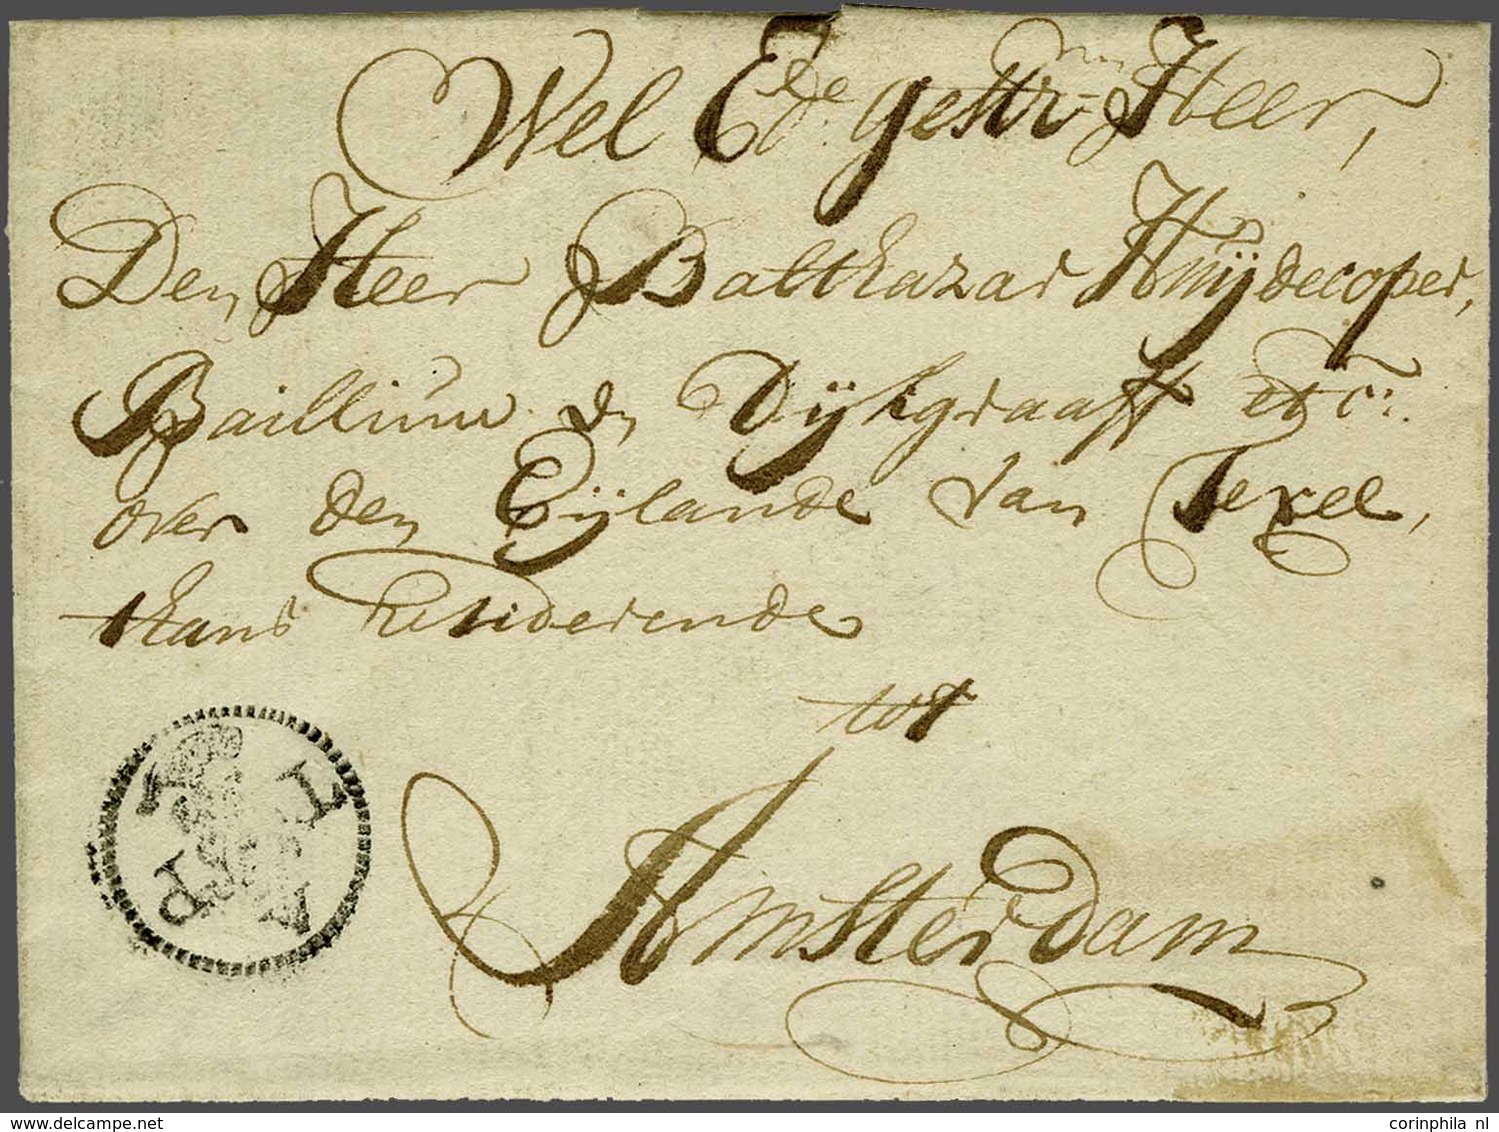 Wel Ede. gestr. Heer,
Den Heer Balthazar Huijdecoper,
Bailliuw & Dijkgraaff etcr.
over den Eijlande van Texel,
thans resideerende
tot
Amsterdam
T
A P
corinphila nl